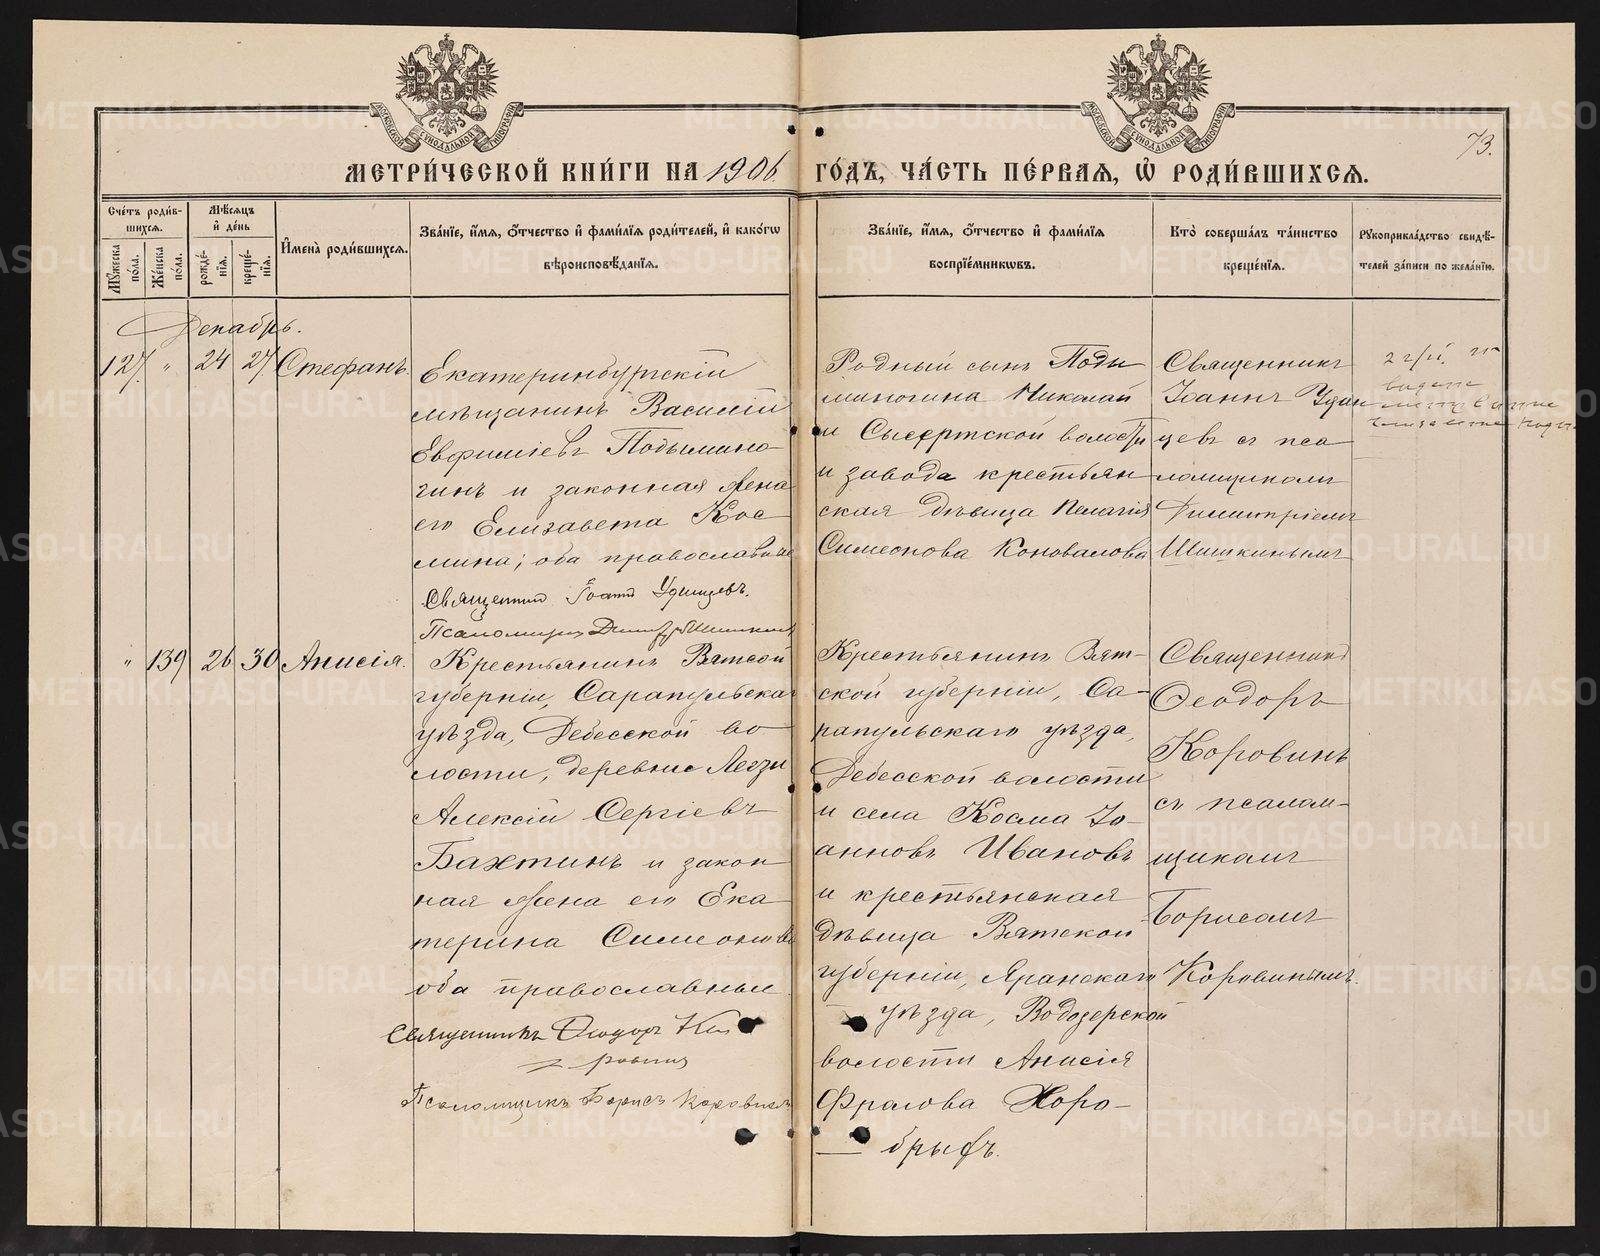 МОСКОВСКОЙ СѴНОДАЛЬНОЙ ТИПОГРАФІИ
МОСКОВСКОЙ СѴНОДАЛЬНОЙ ТИПОГРАФІИ
73.
МЕТРИ́ЧЕСКОЙ КНИ́ГИ НА 1906 ГО́ДЪ, ЧА́СТЬ ПЕ́РВАѦ, Ѡ҆ РОДИ́ВШИХСѦ.
Сче́тъ роди́в-
шихсѧ.
Мꙋ́жеска
по́ла.
Же́нска
по́ла.
Мѣ́сѧцъ
и҆ де́нь
рожде́-
нїѧ.
креще́-
нїѧ.
И҆мена̀ роди́вшихсѧ.
Зва́нїе, и҆́мѧ, ѻ҆́тчество и҆ фами́лїѧ роди́телей, и҆ како́гѡ
вѣроисповѣ́данїѧ.
Зва́нїе, и҆́мѧ, ѻ҆́тчество и҆ фами́лїѧ
воспрїе́мникѡвъ.
Кто̀ соверша́лъ та́инство
креще́нїѧ.
Рꙋкоприкла́дство свидѣ́-
телей за́писи по жела́нїю.
Декабрь.
127. " 24 27. Стефанъ.
Екатеринбургскій
мѣщанинъ Василій
Евфиміевъ Подымино-
гинъ и законная жена
его Елизавета Кос
мина; оба православные
Священник Іоанн Удинцевъ.
Псаломщик Димитр. Шишкинъ
Родный сынъ Поды
миногина Николай
и Сысертской волости
и завода крестьян
ская дѣвица Пелагія
Симеонова Коновалова
Священникъ
Іоаннъ Удин
цевъ съ пса
ломщикомъ
Димитріемъ
Шишкинымъ
" 139 26 30 Анисія.
Крестьянинъ Вятской
губерніи, Сарапульскаго
уѣзда, Дебесской во
лости, деревни Легзи
Алексій Сергіевъ
Бахтинъ и закон
ная жена его Ека
терина Симеонова
оба православные
Священникъ Ѳеодоръ Ко
ровин
Псаломщикъ Борисъ Коровинъ
Крестьянинъ Вят-
ской губерніи, Са-
рапульскаго уѣзда,
Дебесской волости
и села Косма Іо-
анновъ Ивановъ
и крестьянская
дѣвица Вятской
губерніи, Яранскаго
уѣзда, Водозерской
волости Анисія
Фролова Хоро-
брыхъ.
Священникъ
Ѳеодоръ
Коровинъ
съ псалом-
щикомъ
Борисомъ
Коровинымъ.
METRIKI.GASO-URAL.RU